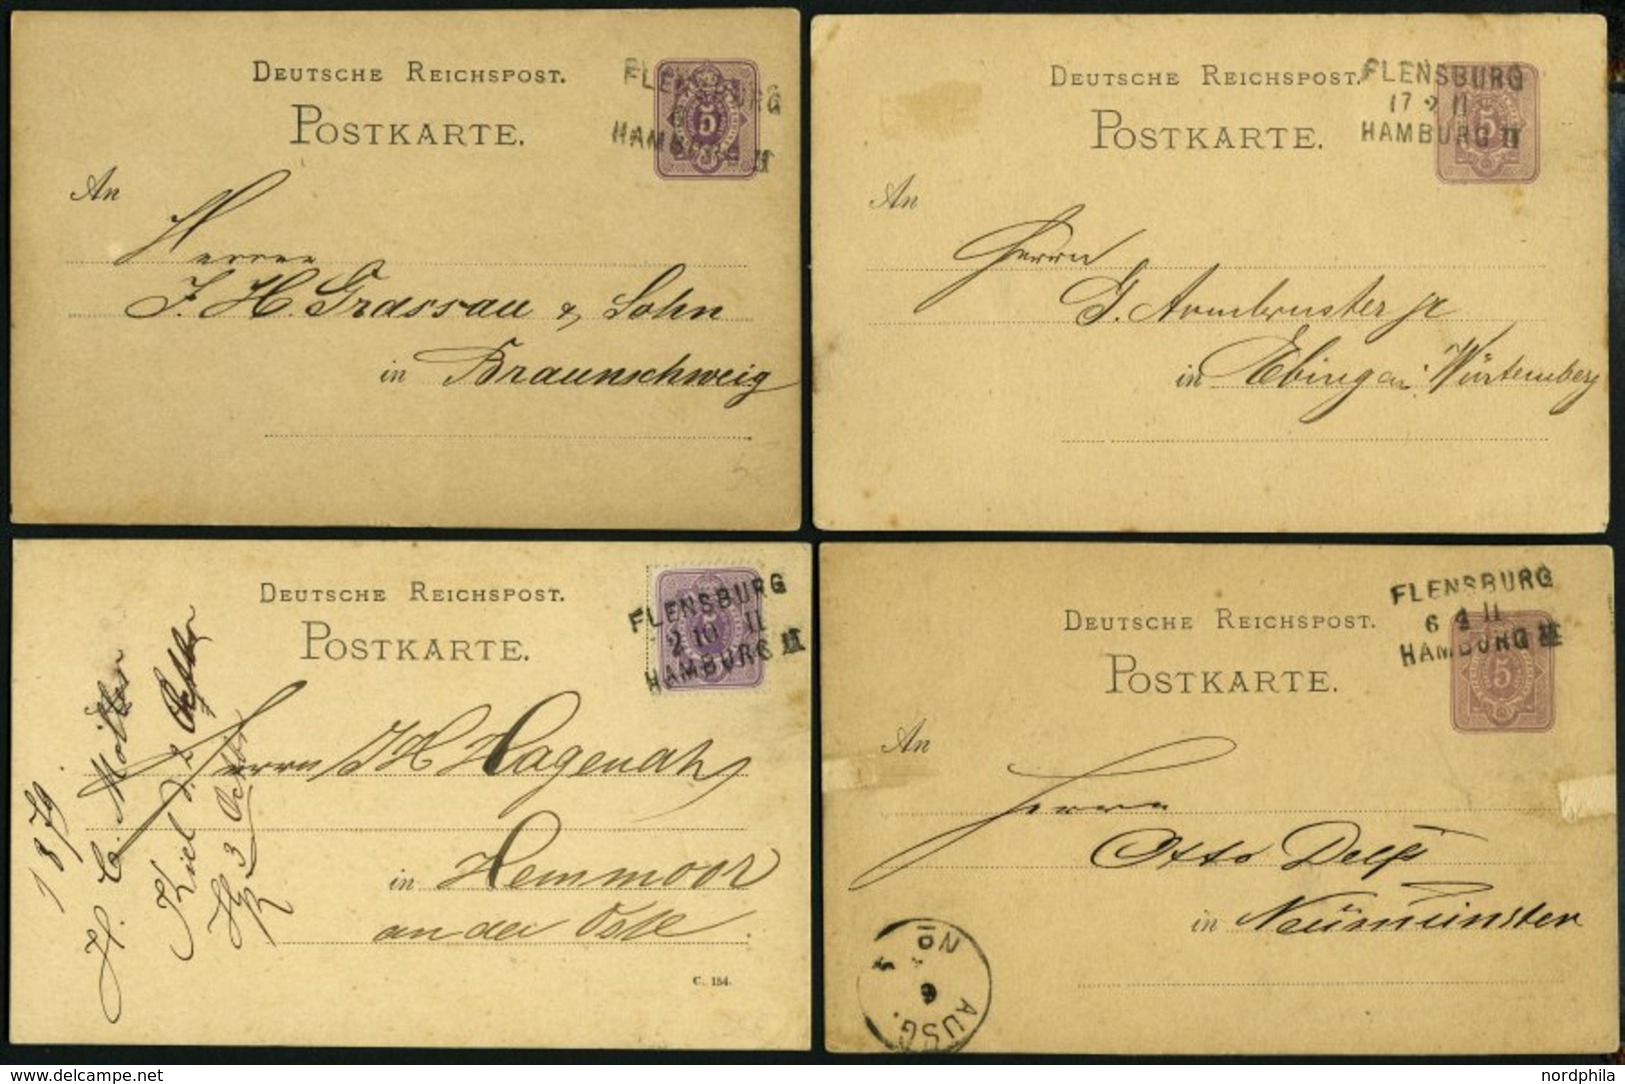 DEUTSCHE REICHSPOST.
POSTKARTE.
FLENSBURG
HAMBURG II
5
An
Herren
J. H. Grassau & Sohn
in Braunschweig
DEUTSCHE REICHSPOST.
POSTKARTE.
FLENSBURG
17 2 II
HAMBURG II
5
An
Herrn
G. Armbruster jr
in Ebingen Würtemberg
DEUTSCHE REICHSPOST.
POSTKARTE.
FLENSBURG
2 10 II
HAMBURG III
5
1879.
H. C. Möller
Kiel d. 2 Octbr
3 Octbr
Herrn J H Hagenah
in Hemmoor
an der Oste.
C. 154.
DEUTSCHE REICHSPOST.
POSTKARTE.
FLENSBURG
6 4 II
HAMBURG III
5
An
Herrn
Otto Delfs
in Neumünster
AUSG.
www.delcampe.net
nordphila